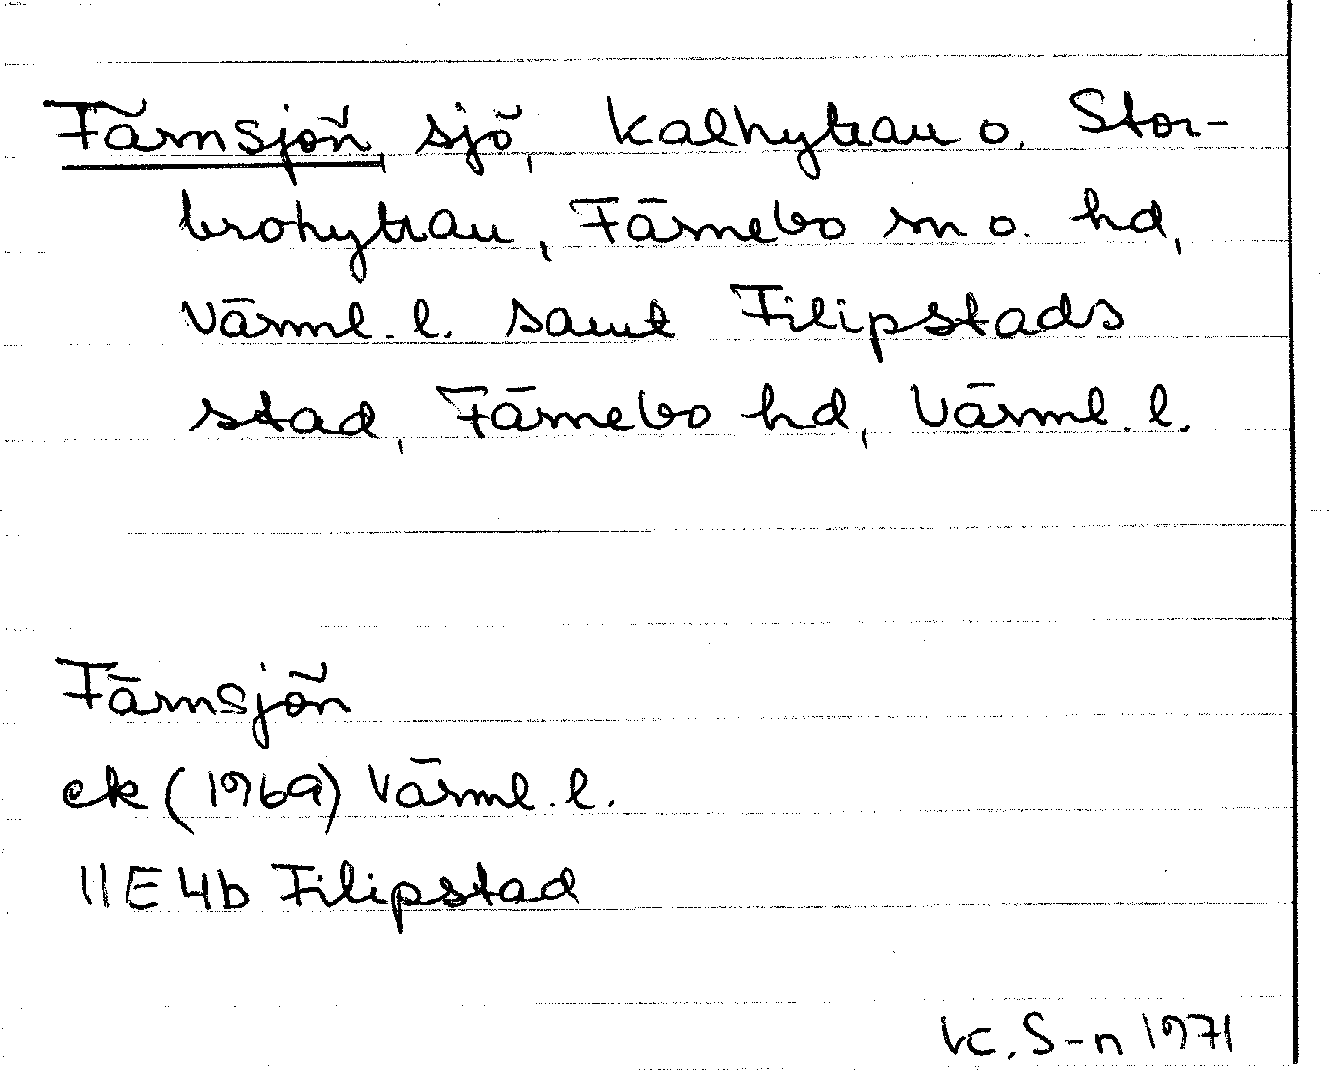 Färnsjön, sjö, Kalhyttan o. Stor-
brohyttan, Färnebo sn o. hd,
Värml. l. samt Filipstads
stad, Färnebo hd, Värml. l.
Färnsjön
ek (1969) Värml. l.
11E4b Filipstad
K. S-n 1971